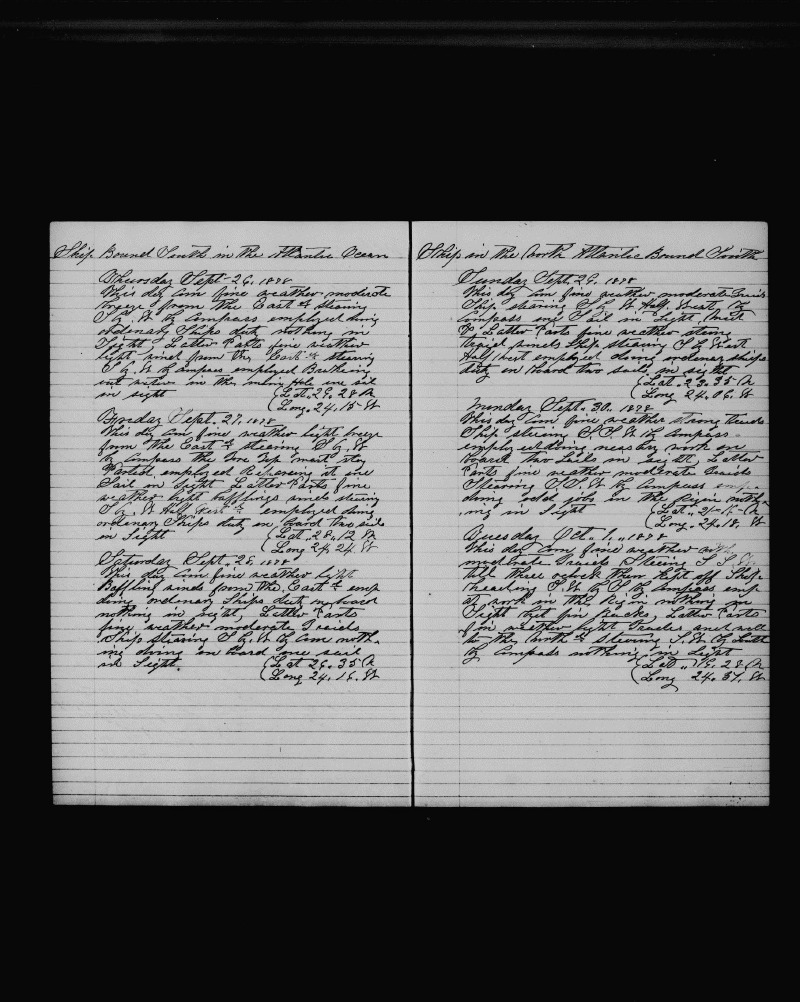 Ship Bound South in the Atlantic Ocean
Thursday Sept. 26. 1878
This day Com fine weather moderate
breeze from the East steering
S by W by Compass employed doing
ordenary Ships duty nothing in
Sight Latter Parts fine weather
light wind from the East steering
S by W by Compass employed Breaking
out water in the main Hole one sail
in sight (Lat. 29. 28 N
(Long. 24. 15 W
Friday Sept. 27. 1878
This day Com fine weather light breeze
from the East steering S by W
by Compass the Fore Top mast stay
Parted employed Repairing it one
Sail in Sight Latter Parts fine
weather light baffling winds steering
S by W Half West employed doing
ordenary Ships duty on board two sail
in Sight (Lat. 28. 12 N
(Long 24. 24. W
Saturday Sept. 28. 1878
This day Com fine weather light
Baffling winds from the East emp
doing ordenary Ships duty on board
nothing in sight Latter Parts
fine weather moderate Traids
Ship stearing S by W by Com noth-
ing doing on Board one sail
in Sight. (Lat 26. 35 N
(Long 24. 16. W
Ship in the North Atlantic Bound South
Sunday Sept. 29. 1878
This day Com fine weather moderate Traids
Ship stearing S by W Half West by
Compass one Sail in Sight
Latter Parts fine weather strong
traid winds Ship stearing S by West
Half West employed doing ordenary ships
duty on board two sails in sight
(Lat. 23. 35 N
Long 24. 06. W
Monday Sept. 30. 1878
This day Com fine weather strong traids
Ship stearing S. S. W by Compass
employed doing work on
board two Sails in sight Latter
Parts fine weather moderate Traids
Stearing S. S. W by Compass
doing odd jobs in the Rigin noth
ing in Sight (Lat. N
(Long. 24. 18. W
Tuesday Oct. 1. 1878
This day Com fine weather
moderate Traids Steering S S
till three oclock then kept off Ship
heading S. W by S by Compass emp
at work on the Rigin nothing in
Sight but fin backs Latter Parts
fine weather light Traides
to the North Stearing S. W by South
by Compass nothing in Sight
(Lat. 19. 28 N
(Long 24. 37. W